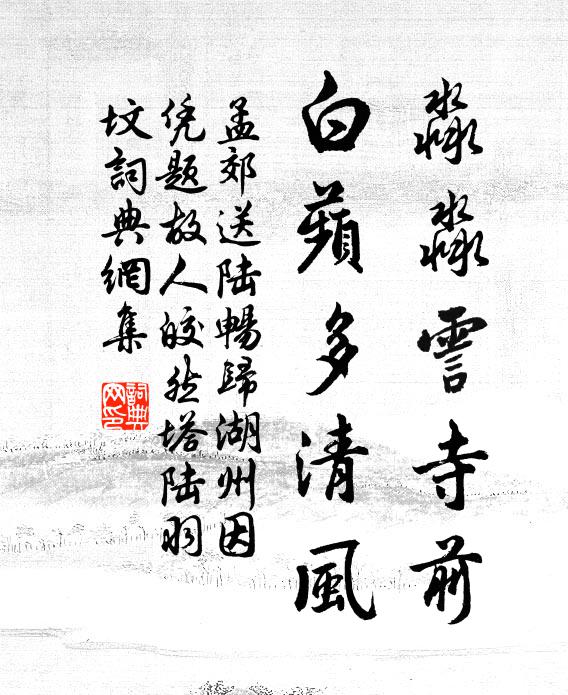 淼淼霅寺前
白蘋多清風
孟郊送陸暢歸湖州因
凭題故人皎然塔陸羽
坟詞典網集
詞典
网印